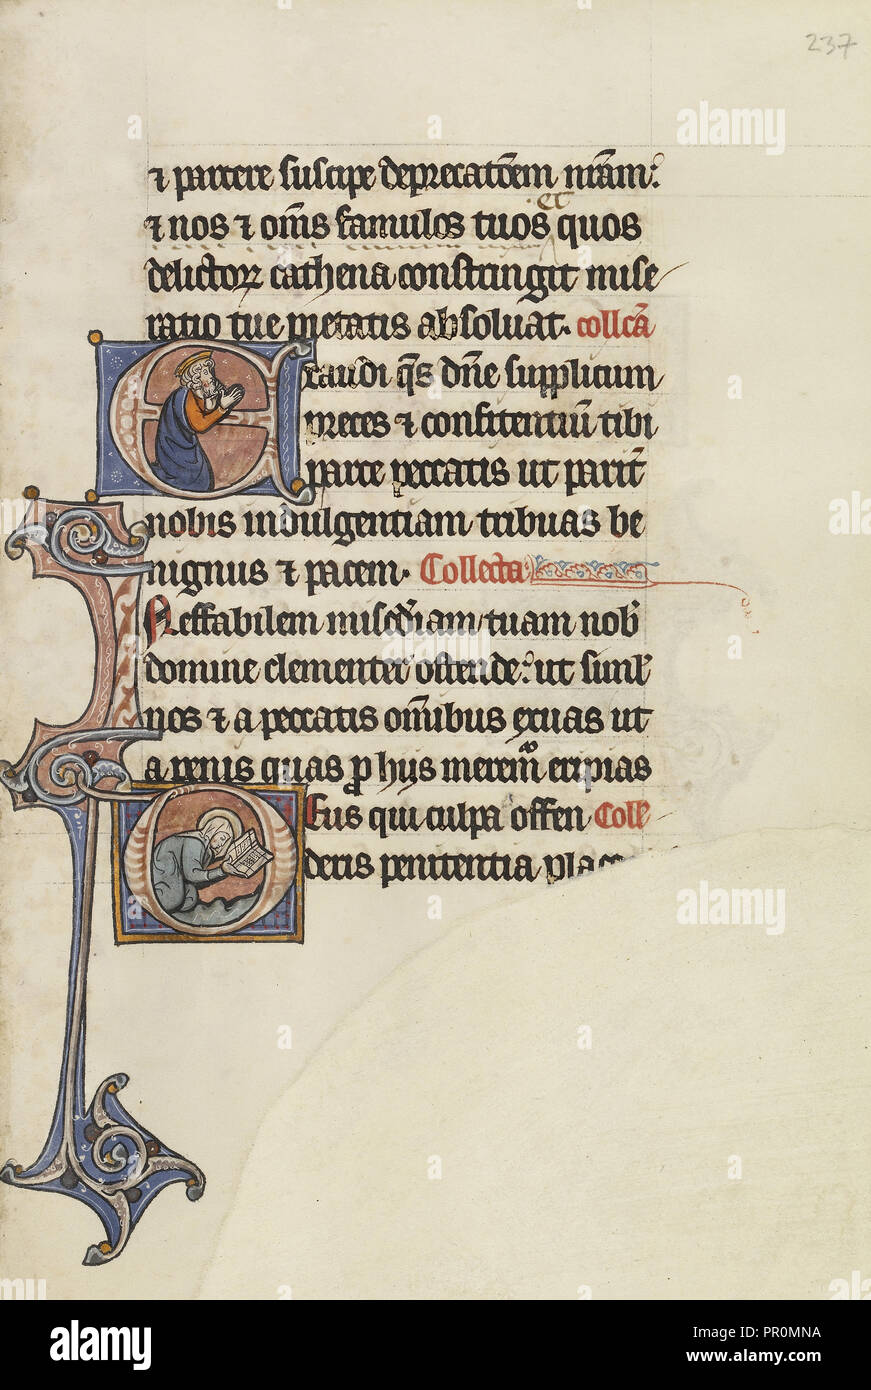 237
⁊ parcere suscipe deprecatōem nr̄am:
et
⁊ nos ⁊ om̄s famulos tuos quos
delictoꝝ cathena constringit mise
ratio tue pietatis absoluat. collc̄a
Exaudi qs̄ dn̄e supplicum
preces ⁊ confitentiū tibi
parce peccatis ut parit̄
nobis indulgentiam tribuas be
nignus ⁊ pacem. Collecta
Ineffabilem misc̄diam tuam nob̄
domine clementer ostende: ut siml̄
nos ⁊ a peccatis om̄ibus exuas ut
a penis quas p̱ hys meremᷣ eripias
Deus qui culpa offen Colle
deris penitentia plac
alamy
alamy
alamy
alamy
alamy
Image ID: PR0MNA
www.alamy.com